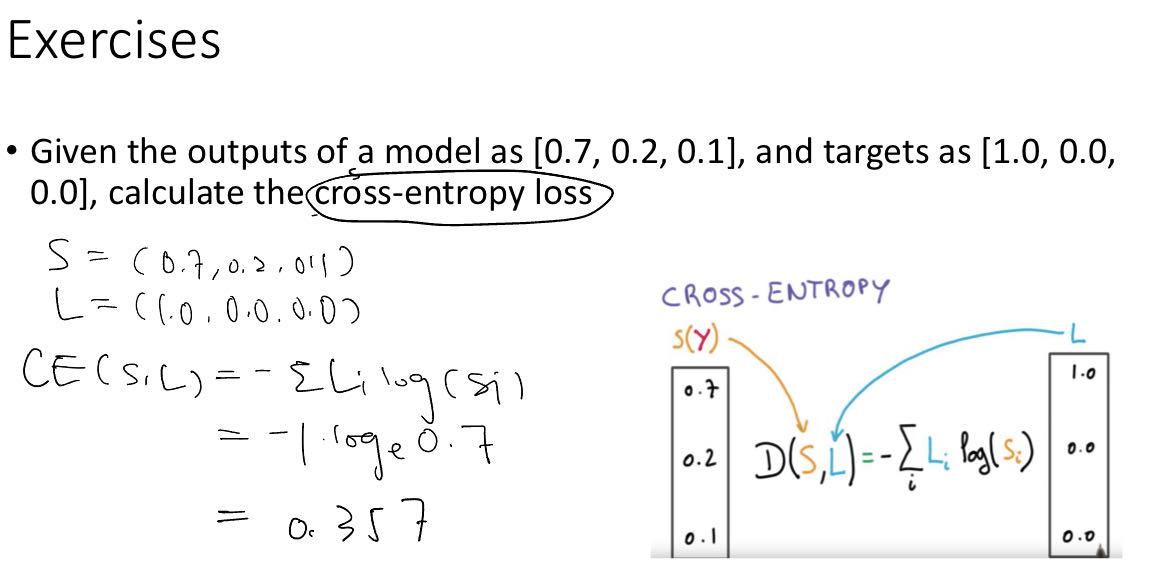 Exercises
• Given the outputs of a model as [0.7, 0.2, 0.1], and targets as [1.0, 0.0,
0.0], calculate the cross-entropy loss
S = (0.7, 0.2, 0.1)
L = (1.0, 0.0, 0.0)
CE(S, L) = - Σ Li log(Si)
= -1. loge 0.7
= 0.357
CROSS-ENTROPY
S(Y)
L
0.7
1.0
0.2
D(S,L) = - Σi Li log(Si)
0.0
0.1
0.0